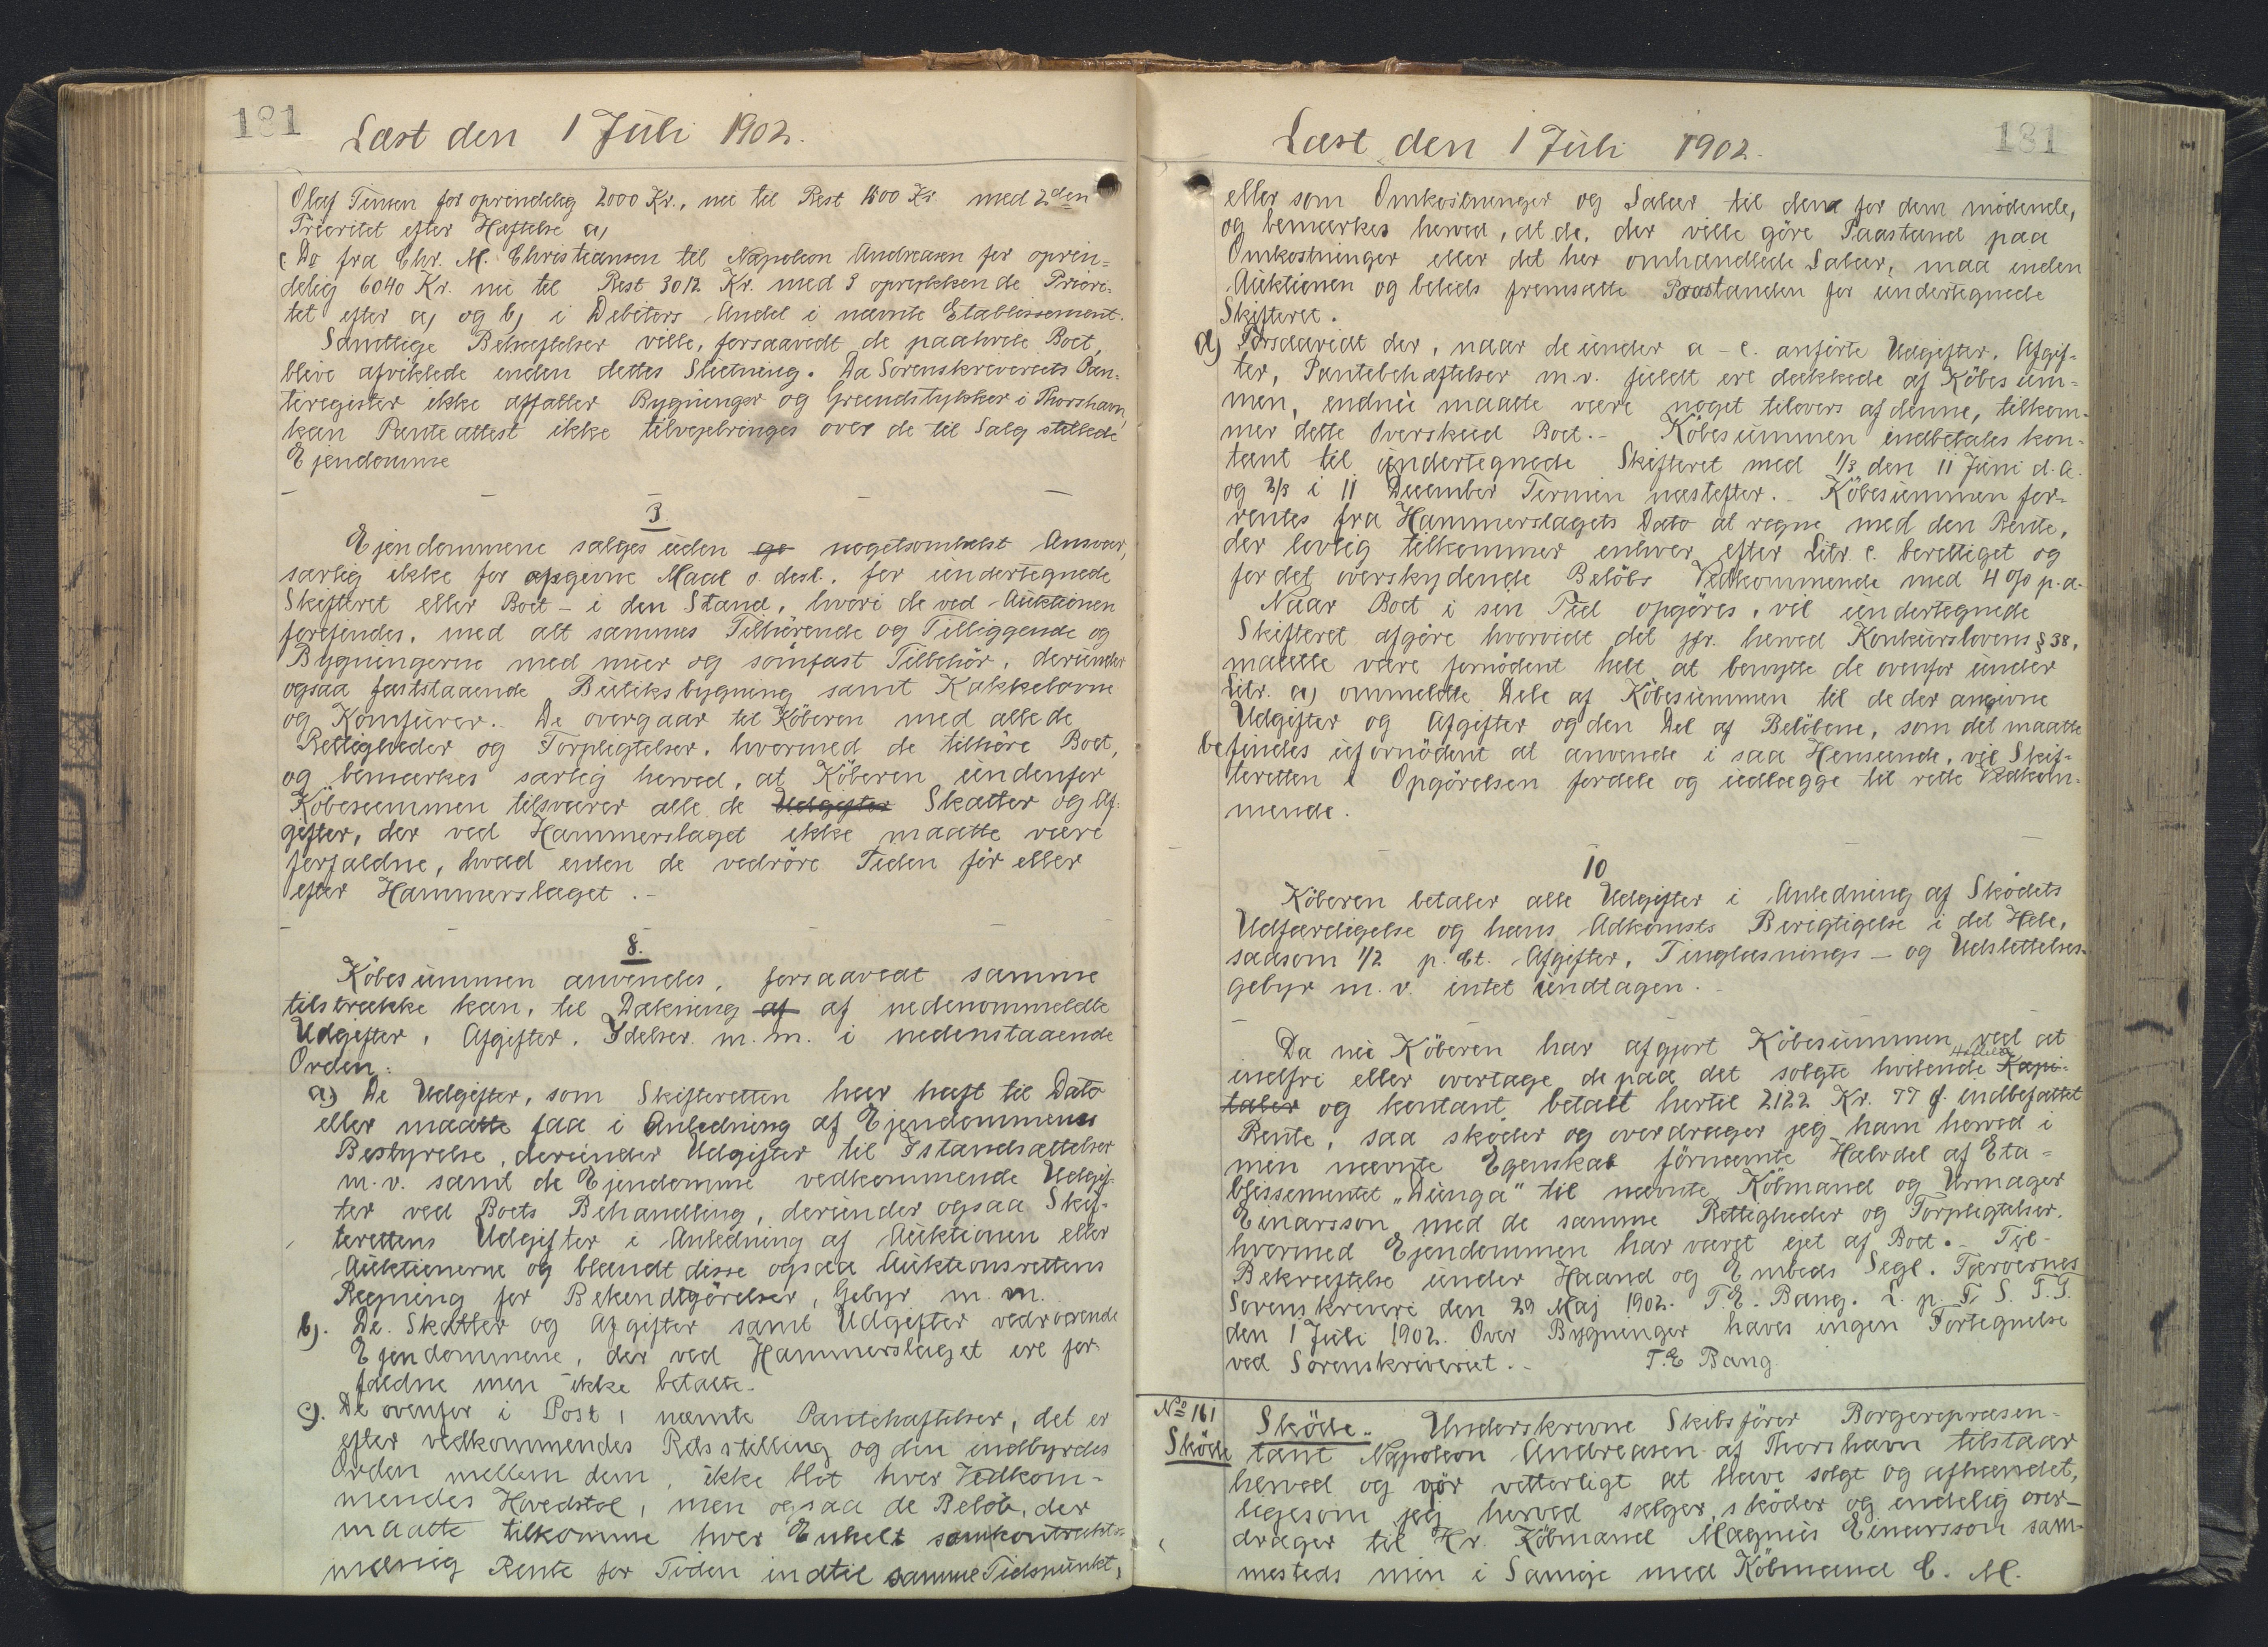 181
Læst den 1 Juli 1902.
Olaf Finsen for oprindelig 2000 Kr., nu til Rest 1500 Kr. med 2den
Prioritet efter Hæftelse a)
c Do fra Chr. M. Christiansen til Napoleon Andreasen for oprin=
delig 6040 Kr. nu til Rest 3012 Kr. med 3 oprykkende Priori-
tet efter a) og b) i Debitors Andel i nævnte Etablissement.
Samtlige Behæftelser ville, forsaavidt de paahvile Boet,
blive afviklede inden dettes Slutning. Da Sorenskriveriets Pan-
teregister ikke affatter Bygninger og Grundstykker i Thorshavn,
kan Panteattest ikke tilvejebringes over de til Salg stillede
Ejendomme
3
Ejendommene sælges uden go nogetsomhelst Ansvar,
særlig ikke for opgivne Maal o. desl. for undertegnede
Skifteret eller Boet - i den Stand, hvori de ved Auktionen
forefindes, med alt sammes Tilhörende og Tilliggende og
Bygningerne med muur og sömfast Tilbehör, derunder
ogsaa faststaaende Butiksbygning samt Kakkelovne
og Komfurer. De overgaar til Köberen med alle de
Rettigheder og Forpligtelser, hvormed de tilhöre Boet,
og bemærkes særlig herved, at Köberen undenfor
Köbesummen tilsvarer alle de Udgifter Skatter og Af-
gifter, der ved Hammerslaget ikke maatte være
forfaldne, hvad enten de vedröre Tiden för eller
efter Hammerslaget.-
8.
Köbesummen anvendes, forsaavidt samme
tilstrække kan, til Dækning af af nedenommeldte
Udgifter, Afgifter, Ydelser m. m. i nedenstaaende
Orden:
a) De Udgifter, som Skifteretten har haft til Dato
eller maatte faa i Anledning af Ejendommenes
Bestyrelse, derunder Udgifter til Istandsættelser
m. v. samt de Ejendomme vedkommende Udgif-
ter ved Boets Behandling, derunder ogsaa Skif-
terettens Udgifter i Anledning af Auktionen eller
Auktionerne og blandt disse ogsaa Auktionsrettens
Regning for Bekendtgörelser, Gebyr m. m.
b). De Skatter og Afgifter samt Udgifter vedrörende
Ejendommene, der ved Hammerslaget ere for-
faldne men ikke betalte.
c). De ovenfor i Post 1 nævnte Pantehæftelser, det er
efter vedkommendes Retsstilling og den indbyrdes
Orden mellem dem, ikke blot hver Vedkom-
mendes Hovedstol, men ogsaa de Beløb, der
maatte tilkomme hver Enkelt som kontrakts-
mæssig Rente for Tiden indtil samme Tidspunkt,
Læst den 1 Juli 1902.
181
eller som Omkostninger og Salær til den for dem mödende,
og bemærkes herved, at de, der ville göre Paastand paa
Omkostninger eller det her omhandlede Salær, maa inden
Auktionen og beløbs fremsætte Paastanden for undertegnede
Skifteret.
d) Forsaavidt der, naar de under a - c. anförte Udgifter, Afgif-
ter, Pantebehæftelser m.v. fuldt ere dækkede af Köbesum-
men, endnu maatte være noget tilovers af denne, tilkom-
mer dette Overskud Boet.- Köbesummen indbetales kon-
tant til undertegnede Skifteret med 1/3 den 11 Juni d. A.
og 2/3 i 11 December Termin næstefter.- Köbesummen for-
rentes fra Hammerslagets Dato at regne med den Rente,
der lovlig tilkommer enhver efter Litr. c. berettiget og
for det overskydende Belöbs Vedkommende med 4 o/o p. a.
Naar Boet i sin Tid opgöres, vil undertegnede
Skifteret afgöre hvorvidt det jfr. herved Konkurslovens § 38,
maatte være fornödent helt at benytte de ovenfor under
Litr. a) ommeldte Dele af Köbesummen til de der angivne
Udgifter og Afgifter og den Del af Belöbene, som det maatte
befindes ufornödent at anvende i saa Henseende, vil Skif-
teretten i Opgörelsen fordele og udlægge til rette Vedkom-
mende.
10
Köberen betaler alle Udgifter i Anledning af Sködets
Udfærdigelse og hans Adkomsts Berigtigelse i det Hele,
saasom 1/2 p. Ct. Afgifter, Tinglæsnings- og Udslettelses-
gebyr m. v. intet undtagen.-
Da nu Köberen har afgjort Köbesummen ved at
indfri eller overtage de paa det solgte hvilende Kapi-
taler og kontant betalt hertil 2122 Kr. 77 Ø. indbefattet
Rente, saa sköder og overdrager jeg ham herved i
min nævnte Egenskab förnævnte Halvdel af Eta=
blissementet "Dunga" til nævnte Köbmand og Urmager
Einarsson med de samme Rettigheder og Forpligtelser,
hvormed Ejendommen har været ejet af Boet.- Til
Bekræftelse under Haand og Embeds Segl. Færöernes
Sorenskriveri den 29 Maj 1902. T. E. Bang. L. p. F. S. T. T.
den 1 Juli 1902. Over Bygninger haves ingen Fortegnelse
ved Sorenskriveriet.- T. E Bang.
No 161
Sköde
Sköde.. Underskrevne Skibsförer Borgerrepræsen-
tant Napoleon Andreasen af Thorshavn tilstaar
herved og gör vitterligt at have solgt og afhændet,
ligesom jeg herved sælger, sköder og endelig over-
drager til Hr. Köbmand Magnus Einarsson sam-
mesteds min i Sameje med Köbmand C. M.